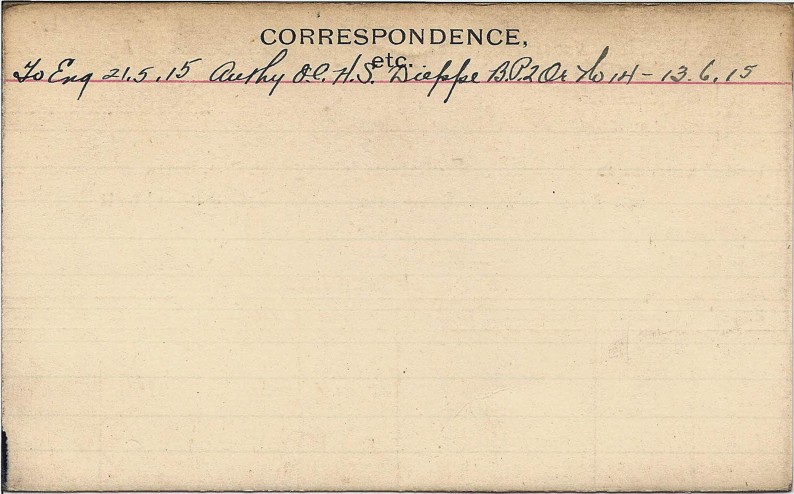 CORRESPONDENCE,
etc.
To Eng 21.5.15 Authy O.C. H.S. Dieppe B.P.2 Or No 14 - 13.6.15